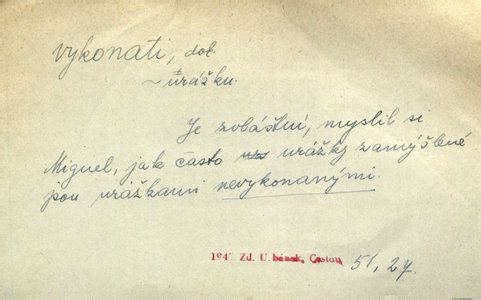 vykonati, dok.
~ urážku.
Je zvláštní, myslil si
Miguel, jak často urážky zamýšlené
jsou urážkami nevykonanými.
194 Zd. Urbánek, Cestou 51, 27.